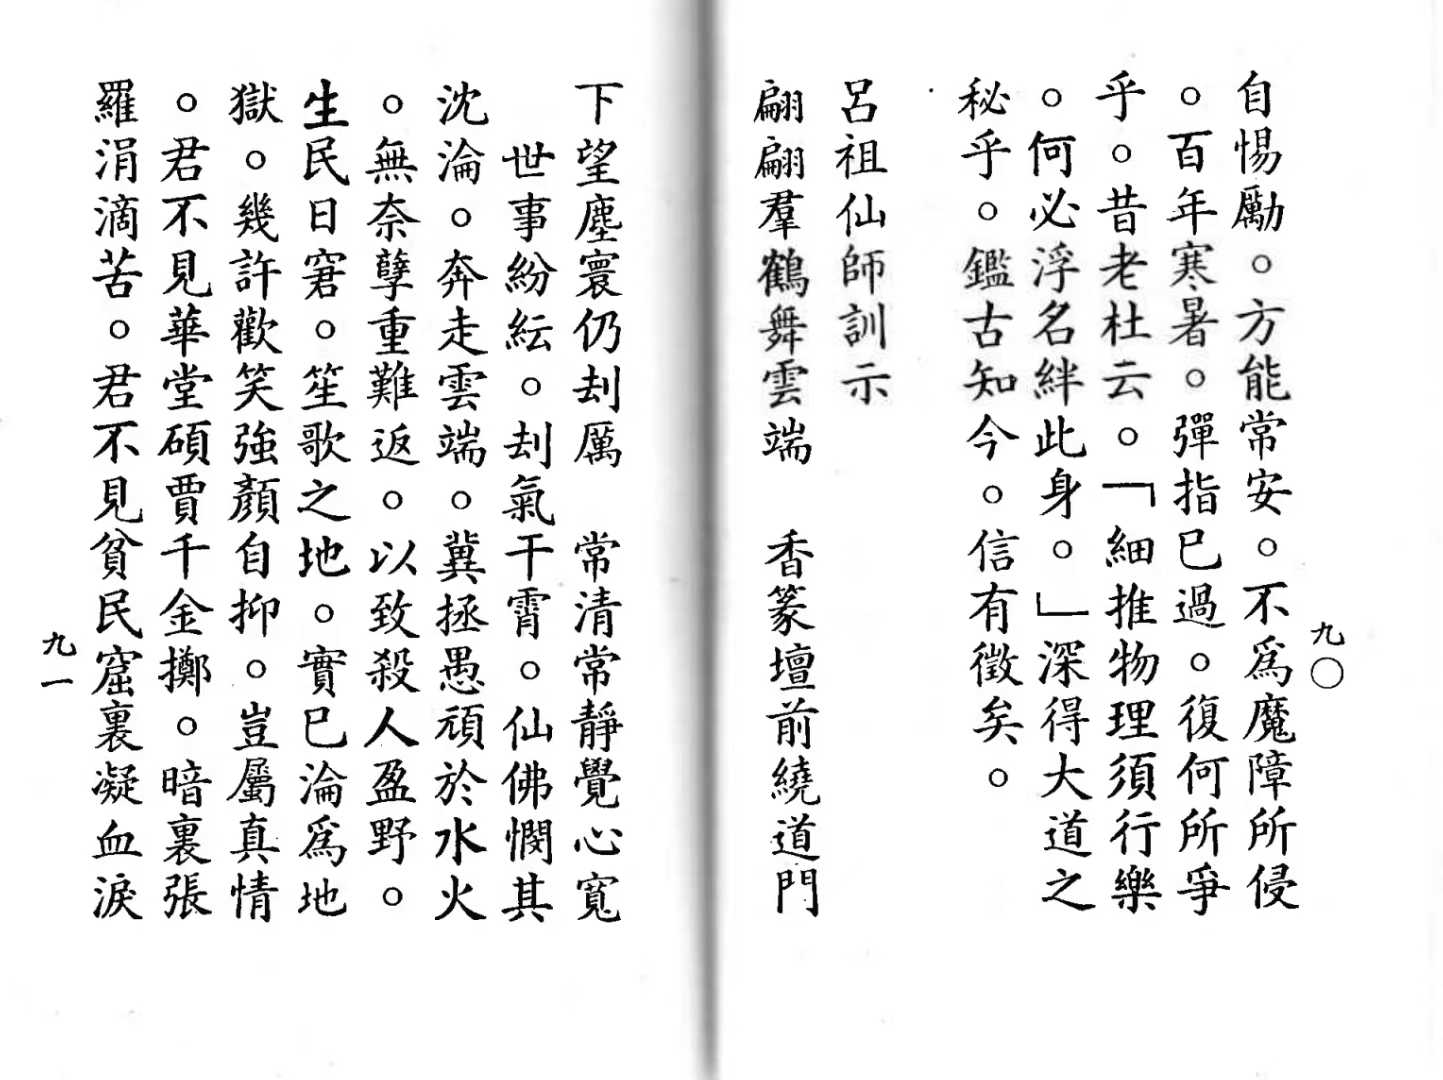 自惕勵。方能常安。不爲魔障所侵
。百年寒暑。彈指已過。復何所爭
乎。昔老杜云。「細推物理須行樂
。何必浮名絆此身。」深得大道之
秘乎。鑑古知今。信有徵矣。
呂祖仙師訓示
翩翩羣鶴舞雲端　香篆壇前繞道門
九〇
下望塵寰仍刦厲　常清常靜覺心寬
世事紛紜。刦氣干霄。仙佛憫其
沈淪。奔走雲端。冀拯愚頑於水火
。無奈孽重難返。以致殺人盈野。
生民日窘。笙歌之地。實已淪爲地
獄。幾許歡笑強顏自抑。豈屬真情
。君不見華堂碩賈千金擲。暗裏張
羅涓滴苦。君不見貧民窟裏凝血淚
九一